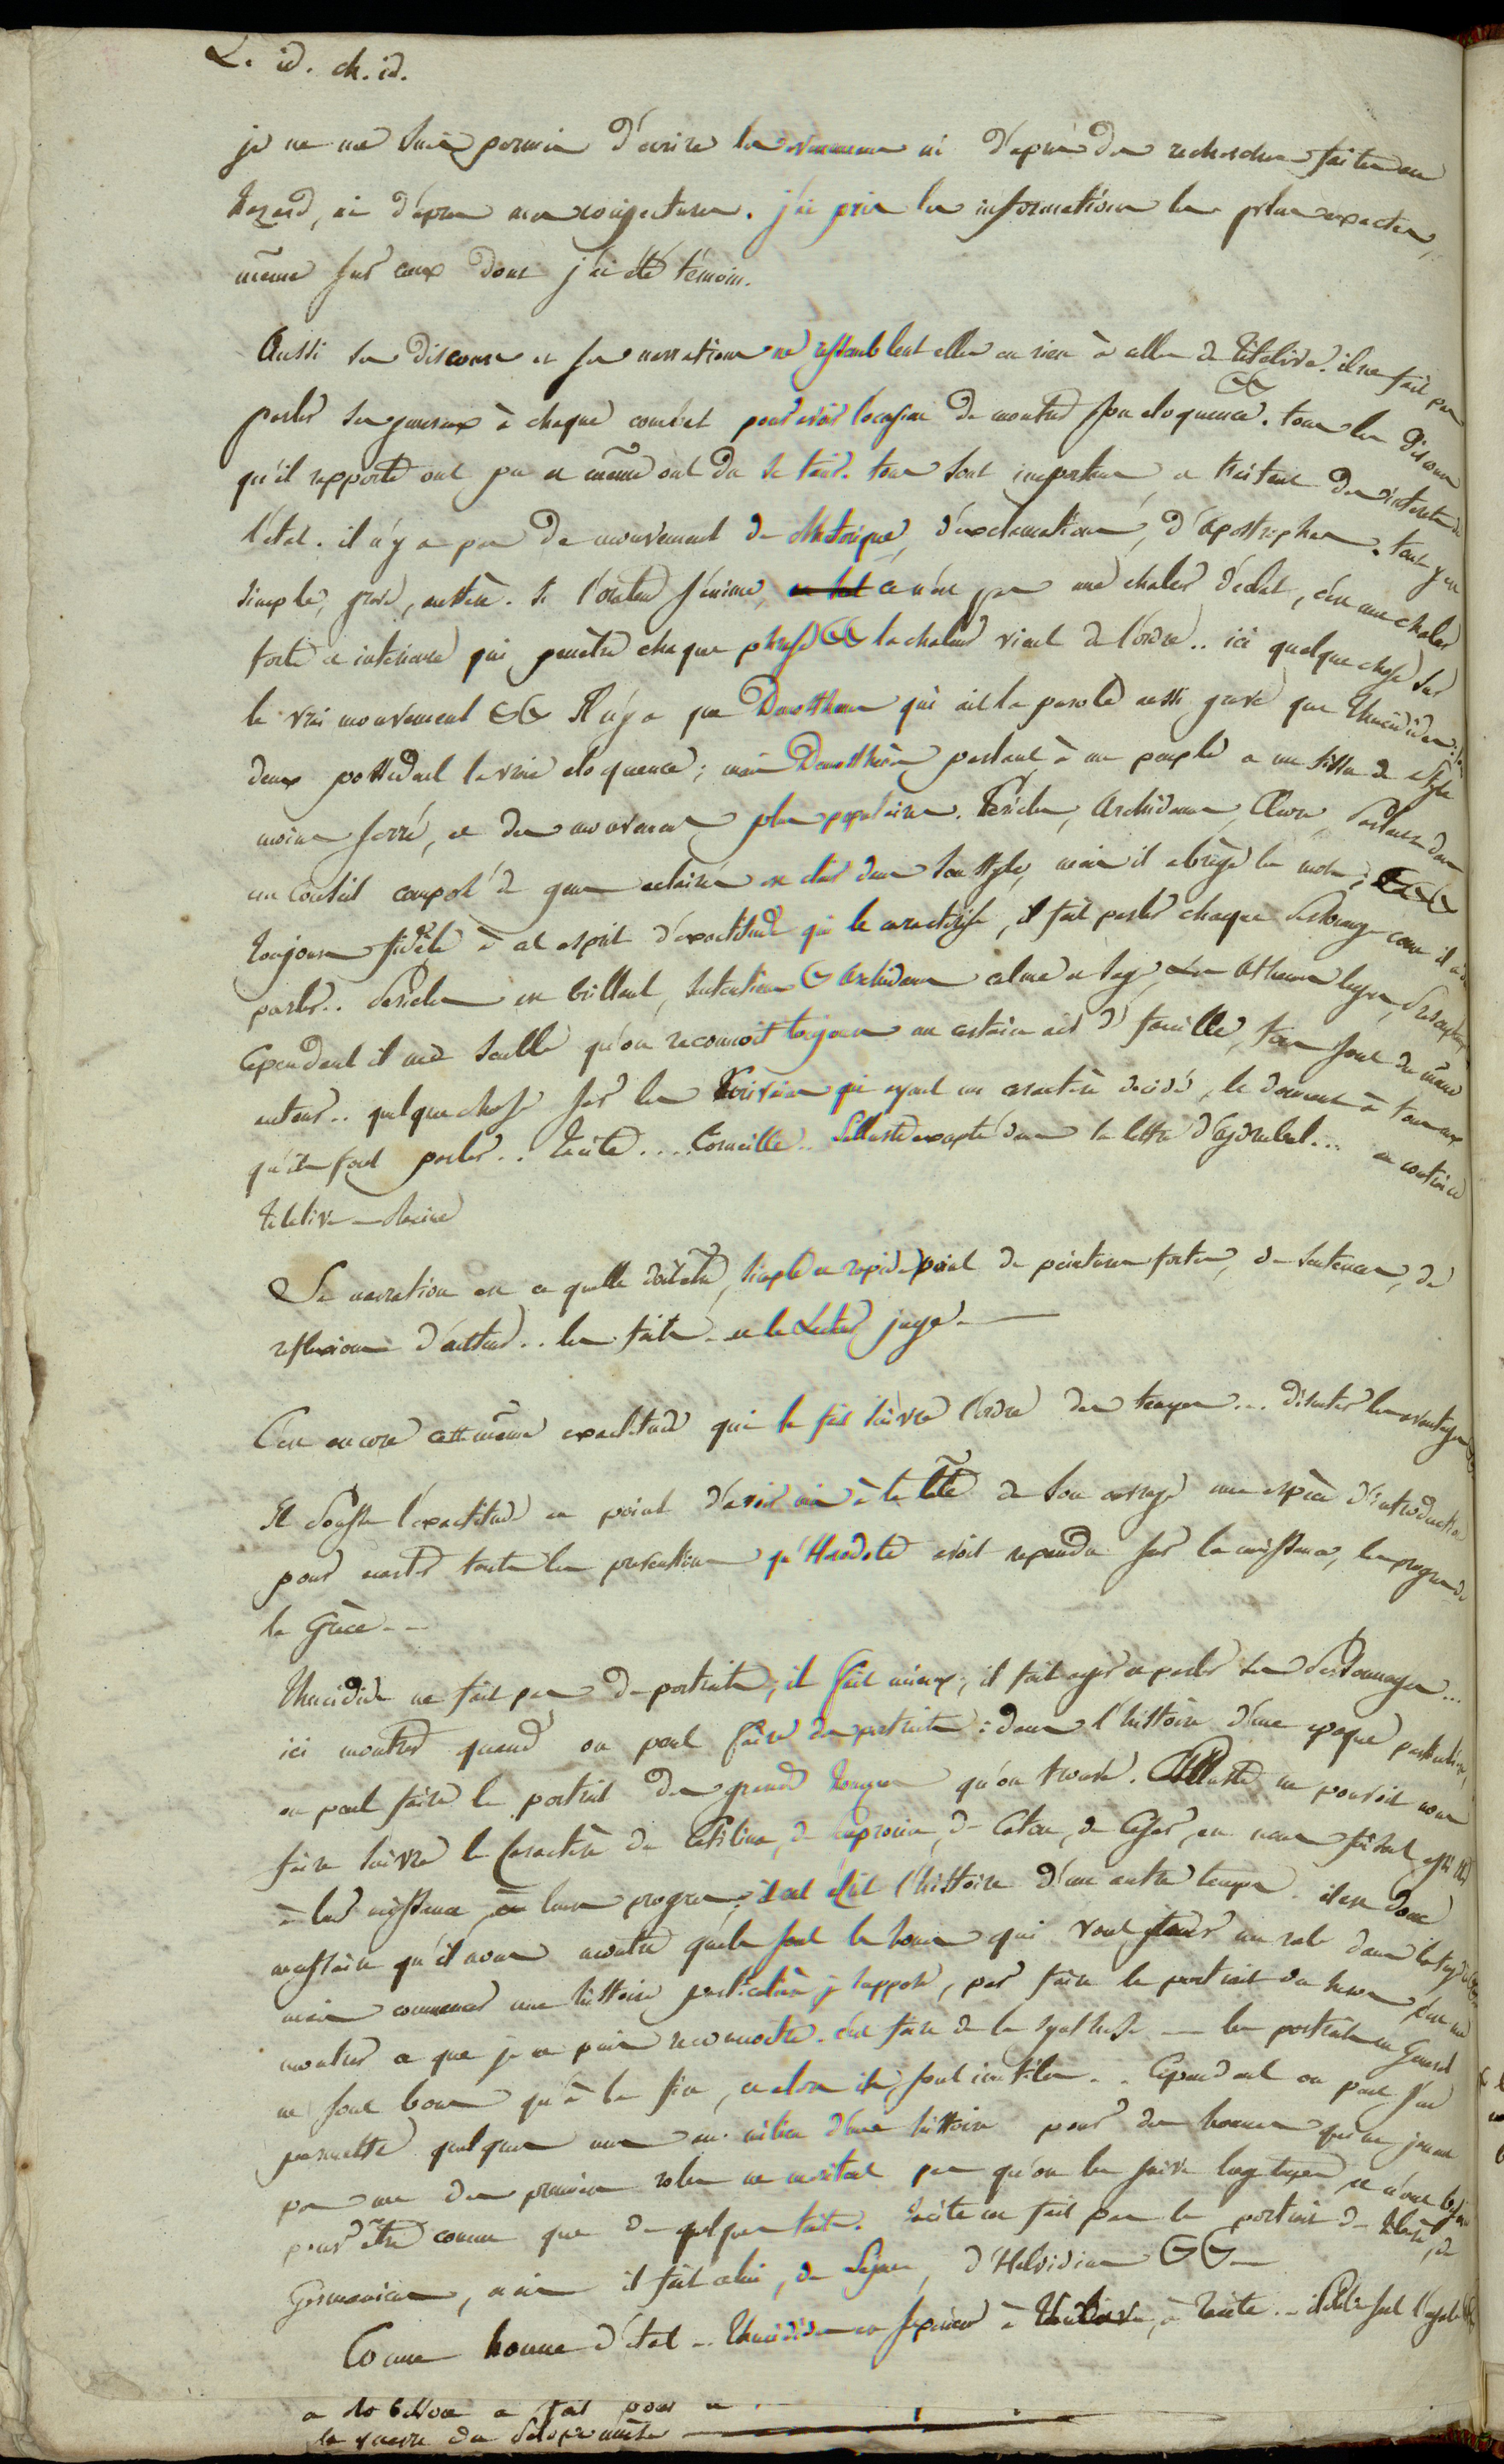 L. id. ch. id.
je ne me suis permis d'écrire les evenemens ni d'après des recherches faites au
hazard, ni d'apres mes conjectures. j'ai pris les informations les plus exactes,
même sur ceux dont j'ai été témoin.
Aussi ses discours et ses narrations ne ressemblent elles en rien à celles de Titelive. il ne fait pas
parler ses generaux à chaque combat pour avoir l'occasion de montrer son eloquence. tous les discours
qu'il rapporte ont pu et même ont du se tenir. tous sont importans et traitent des interets de
l'état. il n'y a pas de mouvement de rhétorique, d'exclamations, d'apostrophes. tout y est
simple, grave, austère. si l'orateur s'anime, ce n'est pas une chaleur d'éclat, c'est une chaleur
forte et interieure qui penètre chaque phrase la chaleur vient de l'ordre.. ici quelque chose sur
le vrai mouvement Il n'y a que Demosthene qui ait la parole aussi grave que Thucidides:
deux possedent la vraie eloquence; mais Demosthène parlant à un peuple a un tissu de style
moins serré, et des mouvemens plus populaires. Periclès, Archidamus, Cleon, parlans dans
un conseil composé de gens eclairés est clair dans son style, mais il abrège les mots;
toujours fidèle à cet esprit d'exactitude qui le caractérise, il fait parler chaque personnage comme il a du
parler.. Periclès est brillant, sententieux Archidamus calme et sage, Les Atheniens legers,
Cependant il me semble qu'on reconnoit toujours un certain air de famille, tous sont du même
auteur.. quelque chose sur les Ecrivains qui ayant un caractère decidé, le donnent à tous ceux
qu'ils font parler.. Tacite.... Corneille.. Salluste excepté dans la lettre d'Adherbal... au contraire
Titelive — Racine
Sa narration est ce quelle doit etre, simple et rapide point de peintures fortes, de sentences, de
reflexions d'auteur.. les faits — et le Lecteur juge.
C'est encore cette même exactitude qui le fait suivre l'ordre des temps... discuter les avantages
Il pousse l'exactitude au point d'avoir mis à la tête de son ouvrage une espèce d'introduction
pour ecarter toutes les preventions qu'Herodote avoit repandu sur la naissance, les progres de
la Grèce —
Thucidide ne fait pas de portraits; il fait mieux; il fait agir et parler ses personnages...
ici montrer quand on peut faire des portraits: dans l'histoire d'une epoque particuliere,
on peut faire le portrait des grands hommes qu'on trouve. Salluste ne pouvoit nous
faire suivre le caractère de Catilina, de Sempronia, de Caton, de Cesar, en nous faisant assister
à leur naissance, à leurs progres; c'etoit l'histoire d'un autre temps. il est donc
necessaire qu'il nous montre quels sont les hommes qui vont jouer un role dans
mais commencer une histoire particulière je suppose, par faire le portrait du heros c'est me
montrer ce que je ne puis reconnoitre. c'est faire de la synthese — les portraits en General
ne sont bons qu'à la fin, et alors ils sont inutiles. . Cependant on peut s'en
permettre quelques uns au milieu d'une histoire pour des hommes qui ne jouant
pas un des premiers roles ne meritent pas qu'on les suive long temps et n'ont besoin
pour être connus que de quelques traits. Tacite ne fait pas le portrait de Tibère, de
Germanicus, mais il fait celui, de Sejan, d'Helvidius
Comme homme d'état — Thucidide est superieur à Titelive, à Tacite..
a fait pour
la guerre du Peloponnèse